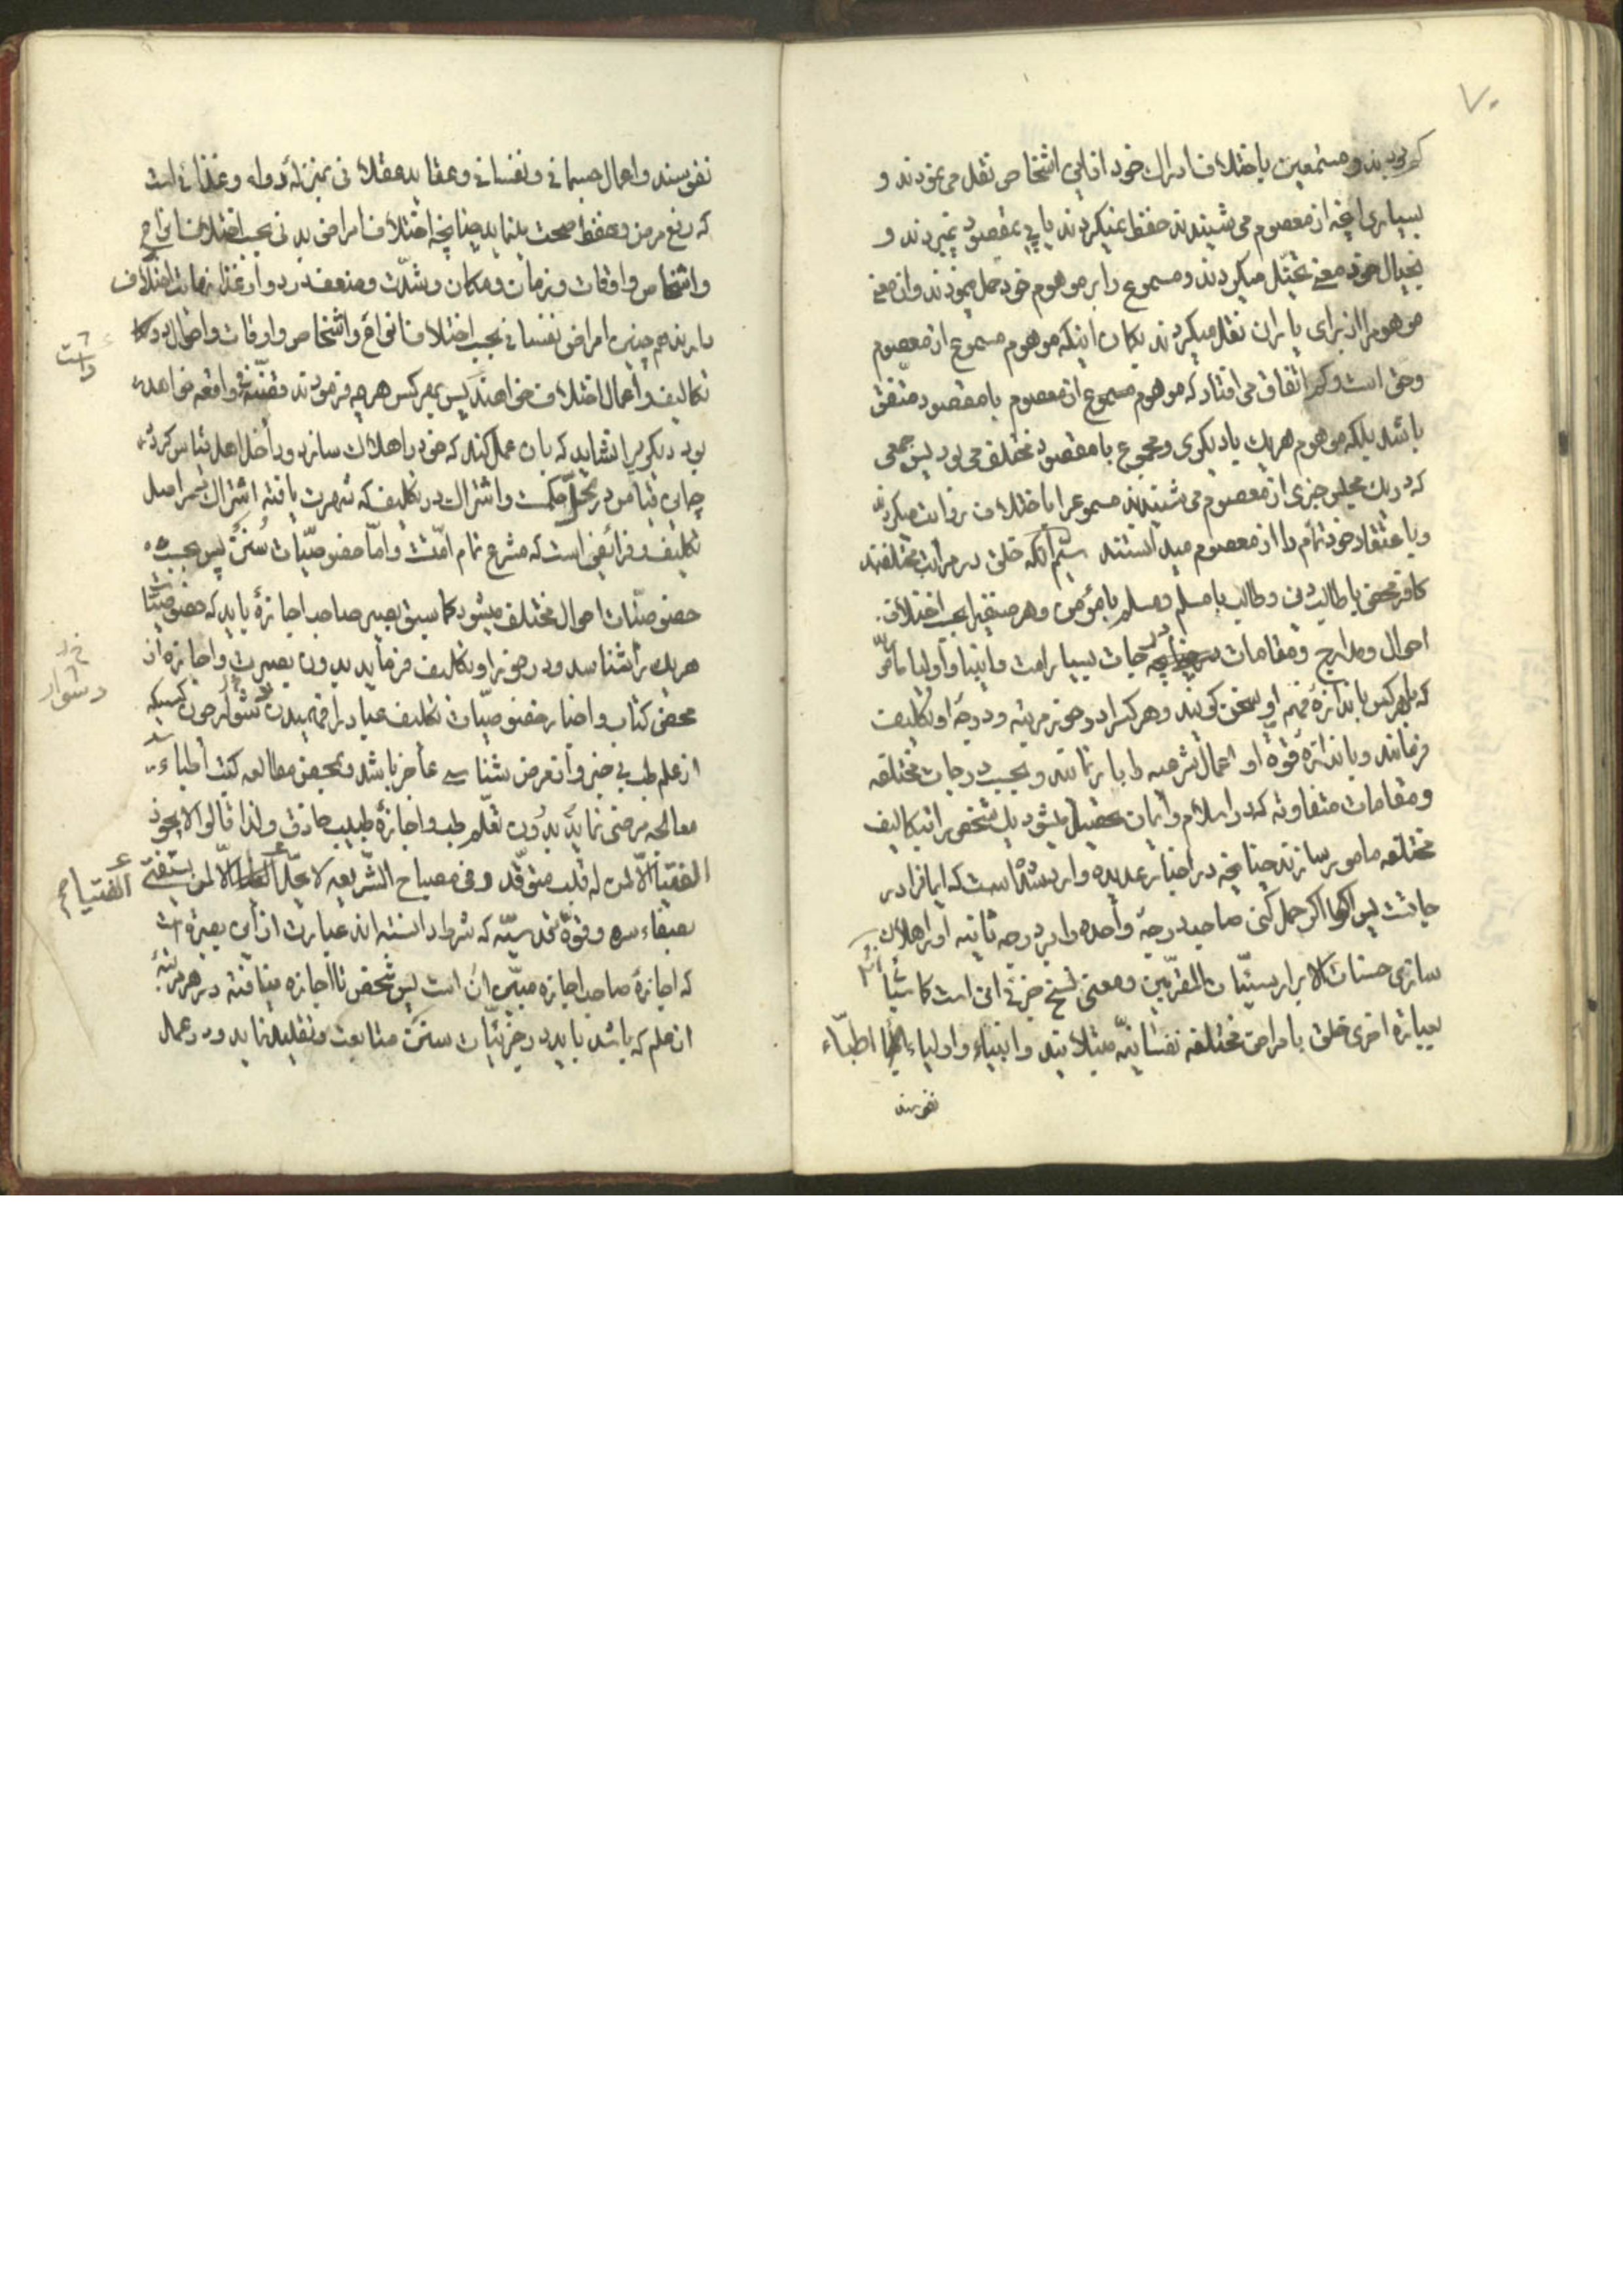 ۷۰
که بودند و مستمعین باختلاف ادراک خود از این اشخاص نقل می نمودند و
بسیاری انچه از معصوم می شنیدند حفظ نمیکردند یا پی بمقصود نمیبردند و
بخیال خود معنی تخیّل میکردند و مسموع را بر موهوم خود حمل مینمودند و ان معنی
موهوم را از برای یاران نقل میکردند بکان اینکه موهوم مسموع از معصوم
و حق است و کم اتفاق می افتاد که موهوم مسموع از معصوم با مقصود متّفق
باشد بلکه موهوم هریک با دیکری و مجموع با مقصود مختلف می بود پس جمعی
که در یک مجلس چیزی از معصوم می شنیدند مسموع را باختلاف روایت میکردند
و باعتقاد خود تمام را از معصوم میدانستند سیّم انکه خلق در مراتب مختلفند
کافر محض یا طالب دین و طالب یا مسلم و مسلم یا مؤمن و هر صنفی را بحسب اختلاف
احوال و مدارج و مقامات درجات بسیار است و انبیا و اولیا مامور
که با هر کس باندازه فهم او سخن کویند و هر کس را در خور مرتبه و درجه او تکلیف
فرمایند و باندازه قوّه او اعمال شرعیه را بار نمایند و بحسب درجات مختلفه
و مقامات متفاوته که در اسلام و ایمان تحصیل میشود یک شخص را بتکالیف
مختلفه مامور سازند چنانچه در اخبار عدیده وارد شده است که ایمانرا در
جاتست پس اکر حمل کنی صاحب درجه واحده را بر درجه ثانیه او را هلاک
سازی حسنات الابرار سیّئات المقرّبین و معنی نسخ جزئی این است کما سیأتی
بعبارة اخری خلق بامراض مختلفه نفسانیّه مبتلایند و انبیاء و اولیاء اطبّاء
نفوسند
نفوسند و اعمال جسمانی و نفسانی و عقاید عقلانی بمنزله دواء و غذائی است
که رفع مرض و حفظ صحت بنماید چنانچه اختلاف امراض بدنی بحسب اختلاف انواع
و اشخاص و اوقات و زمان و مکان و شدّت و ضعف در دوا و غذا نهایت اختلاف
دارند همچنین امراض نفسانی بحسب اختلاف انواع و اشخاص و اوقات و احوال در
تکالیف و اعمال اختلاف خواهند داشت پس بهر کس هر چه فرمودند قضیّة فی واقعه خواهد
بود دیکری را نشاید که بان عمل کند که خود را هلاک سازد و داخل اهل قیاس کردد
چه این قیاس در محلّ حکمت و اشتراک در تکلیف که شهرت یافته اشتراک در اصل
تکلیف و فرائضی است که مشرع تمام امّتست و امّا خصوصیّات سُنَن پس بحسب
خصوصیّات احوال مختلف میشود کما سبق بصیر صاحب اجازه باید که خصوصیّات
هر یک را شناسد و در خور او تکلیف فرماید بدون بصیرت و اجازه از
محض کتاب و اخبار خصوصیّات تکلیف عباد را فهمیدن دشوار چون کسیکه
از علم طب بی خبر و از مرض شناسی عاجز باشد و بمحض مطالعه کتب اطباء
معالجه مرضی نماید بدون تعلّم طب و اجازه طبیب حاذق و لذا قالوا لا یجوز
الفتیا الّا لمن له قلب متوقّد و فی مصباح الشّریعه لا یحلّ الفتیا الّا لمن یستفتی
بصفاء سره و قوّه قدسیّه که شرط دانسته اند عبارت از این بصیرة است
که اجازه صاحب اجازه مبیّن ان است پس شخص تا اجازه نیافته در هر مرتبه
از علم که باشد باید در جزئیّات سنن متابعت و تقلید نماید و در عمل
داشت
دشوار
الفتیا صح